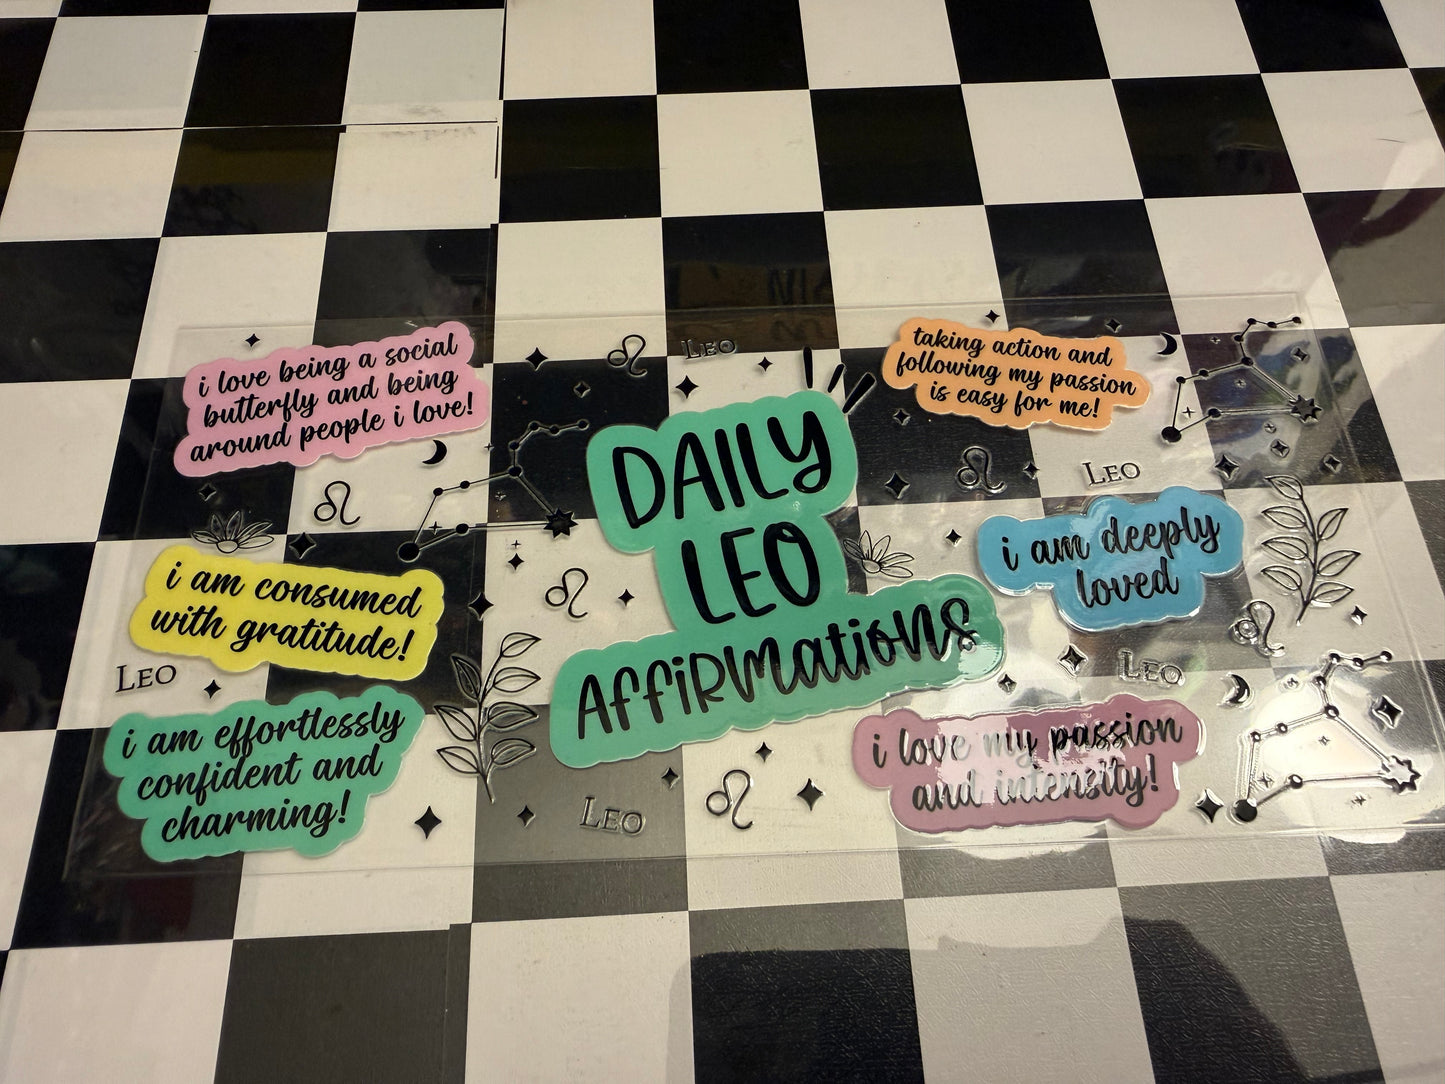 i love being a social
butterfly and being
around people i love!
LEO
taking action and
following my passion
is easy for me!
DAILY
LEO
AFFIRMATIONS
LEO
i am deeply
loved
i am consumed
with gratitude!
LEO
LEO
i am effortlessly
confident and
charming!
i love my passion
and intensity!
LEO